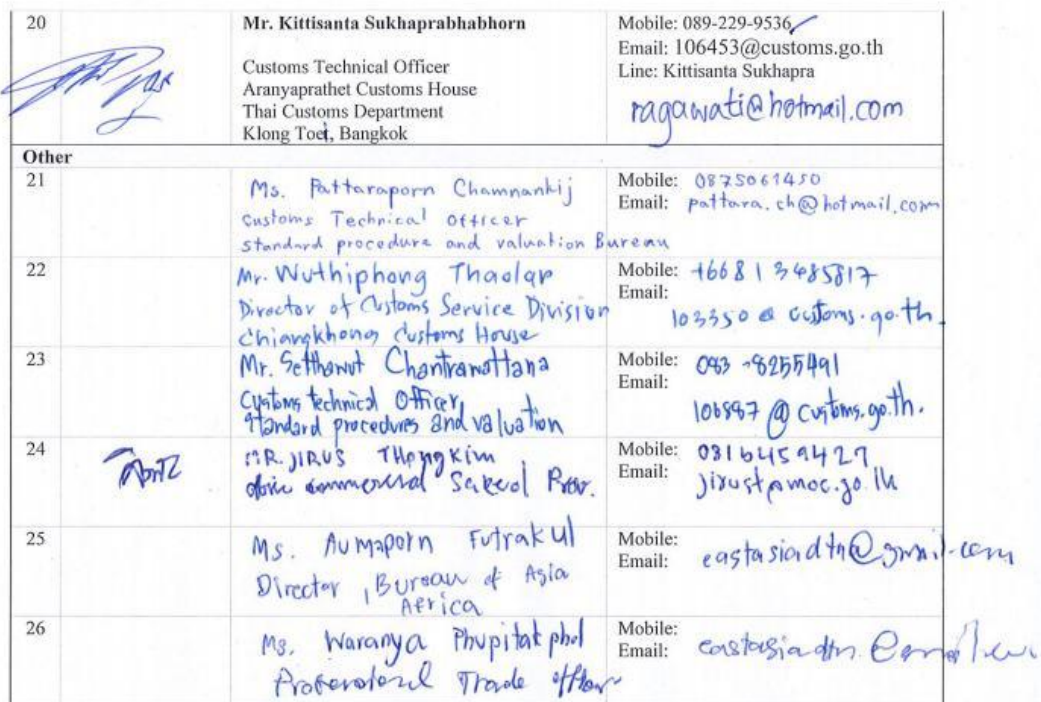 20
Mr. Kittisanta Sukhaprabhabhorn
Customs Technical Officer
Aranyaprathet Customs House
Thai Customs Department
Klong Toei, Bangkok
Mobile: 089-229-9536
Email: 106453@customs.go.th
Line: Kittisanta Sukhapra
ragawati@hotmail.com
Other
21
Ms. Pattaraporn Chamnankij
Customs Technical Officer
standard procedure and valuation Bureau
Mobile: 0875061450
Email: pattara.ch@hotmail.com
22
Mr. Wuthiphong Thaolar
Director of Customs Service Division
Chiangkhong Customs House
Mobile: +66813485817
Email:
103350@customs.go.th
23
Mr. Setthawut Chantrawattana
Customs technical Officer,
Standard procedures and valuation
Mobile: 083-8255491
Email:
106887@customs.go.th.
24
MR. JIRUS THongKim
commercial Prov.
Mobile: 0816459427
Email:
25
Ms. Aumaporn Futrakul
Director, Bureau of Asia
Africa
Mobile:
Email: eastasiadtn@gmail.com
26
Ms. Waranya Phupitakphol
Trade officer
Mobile:
Email: